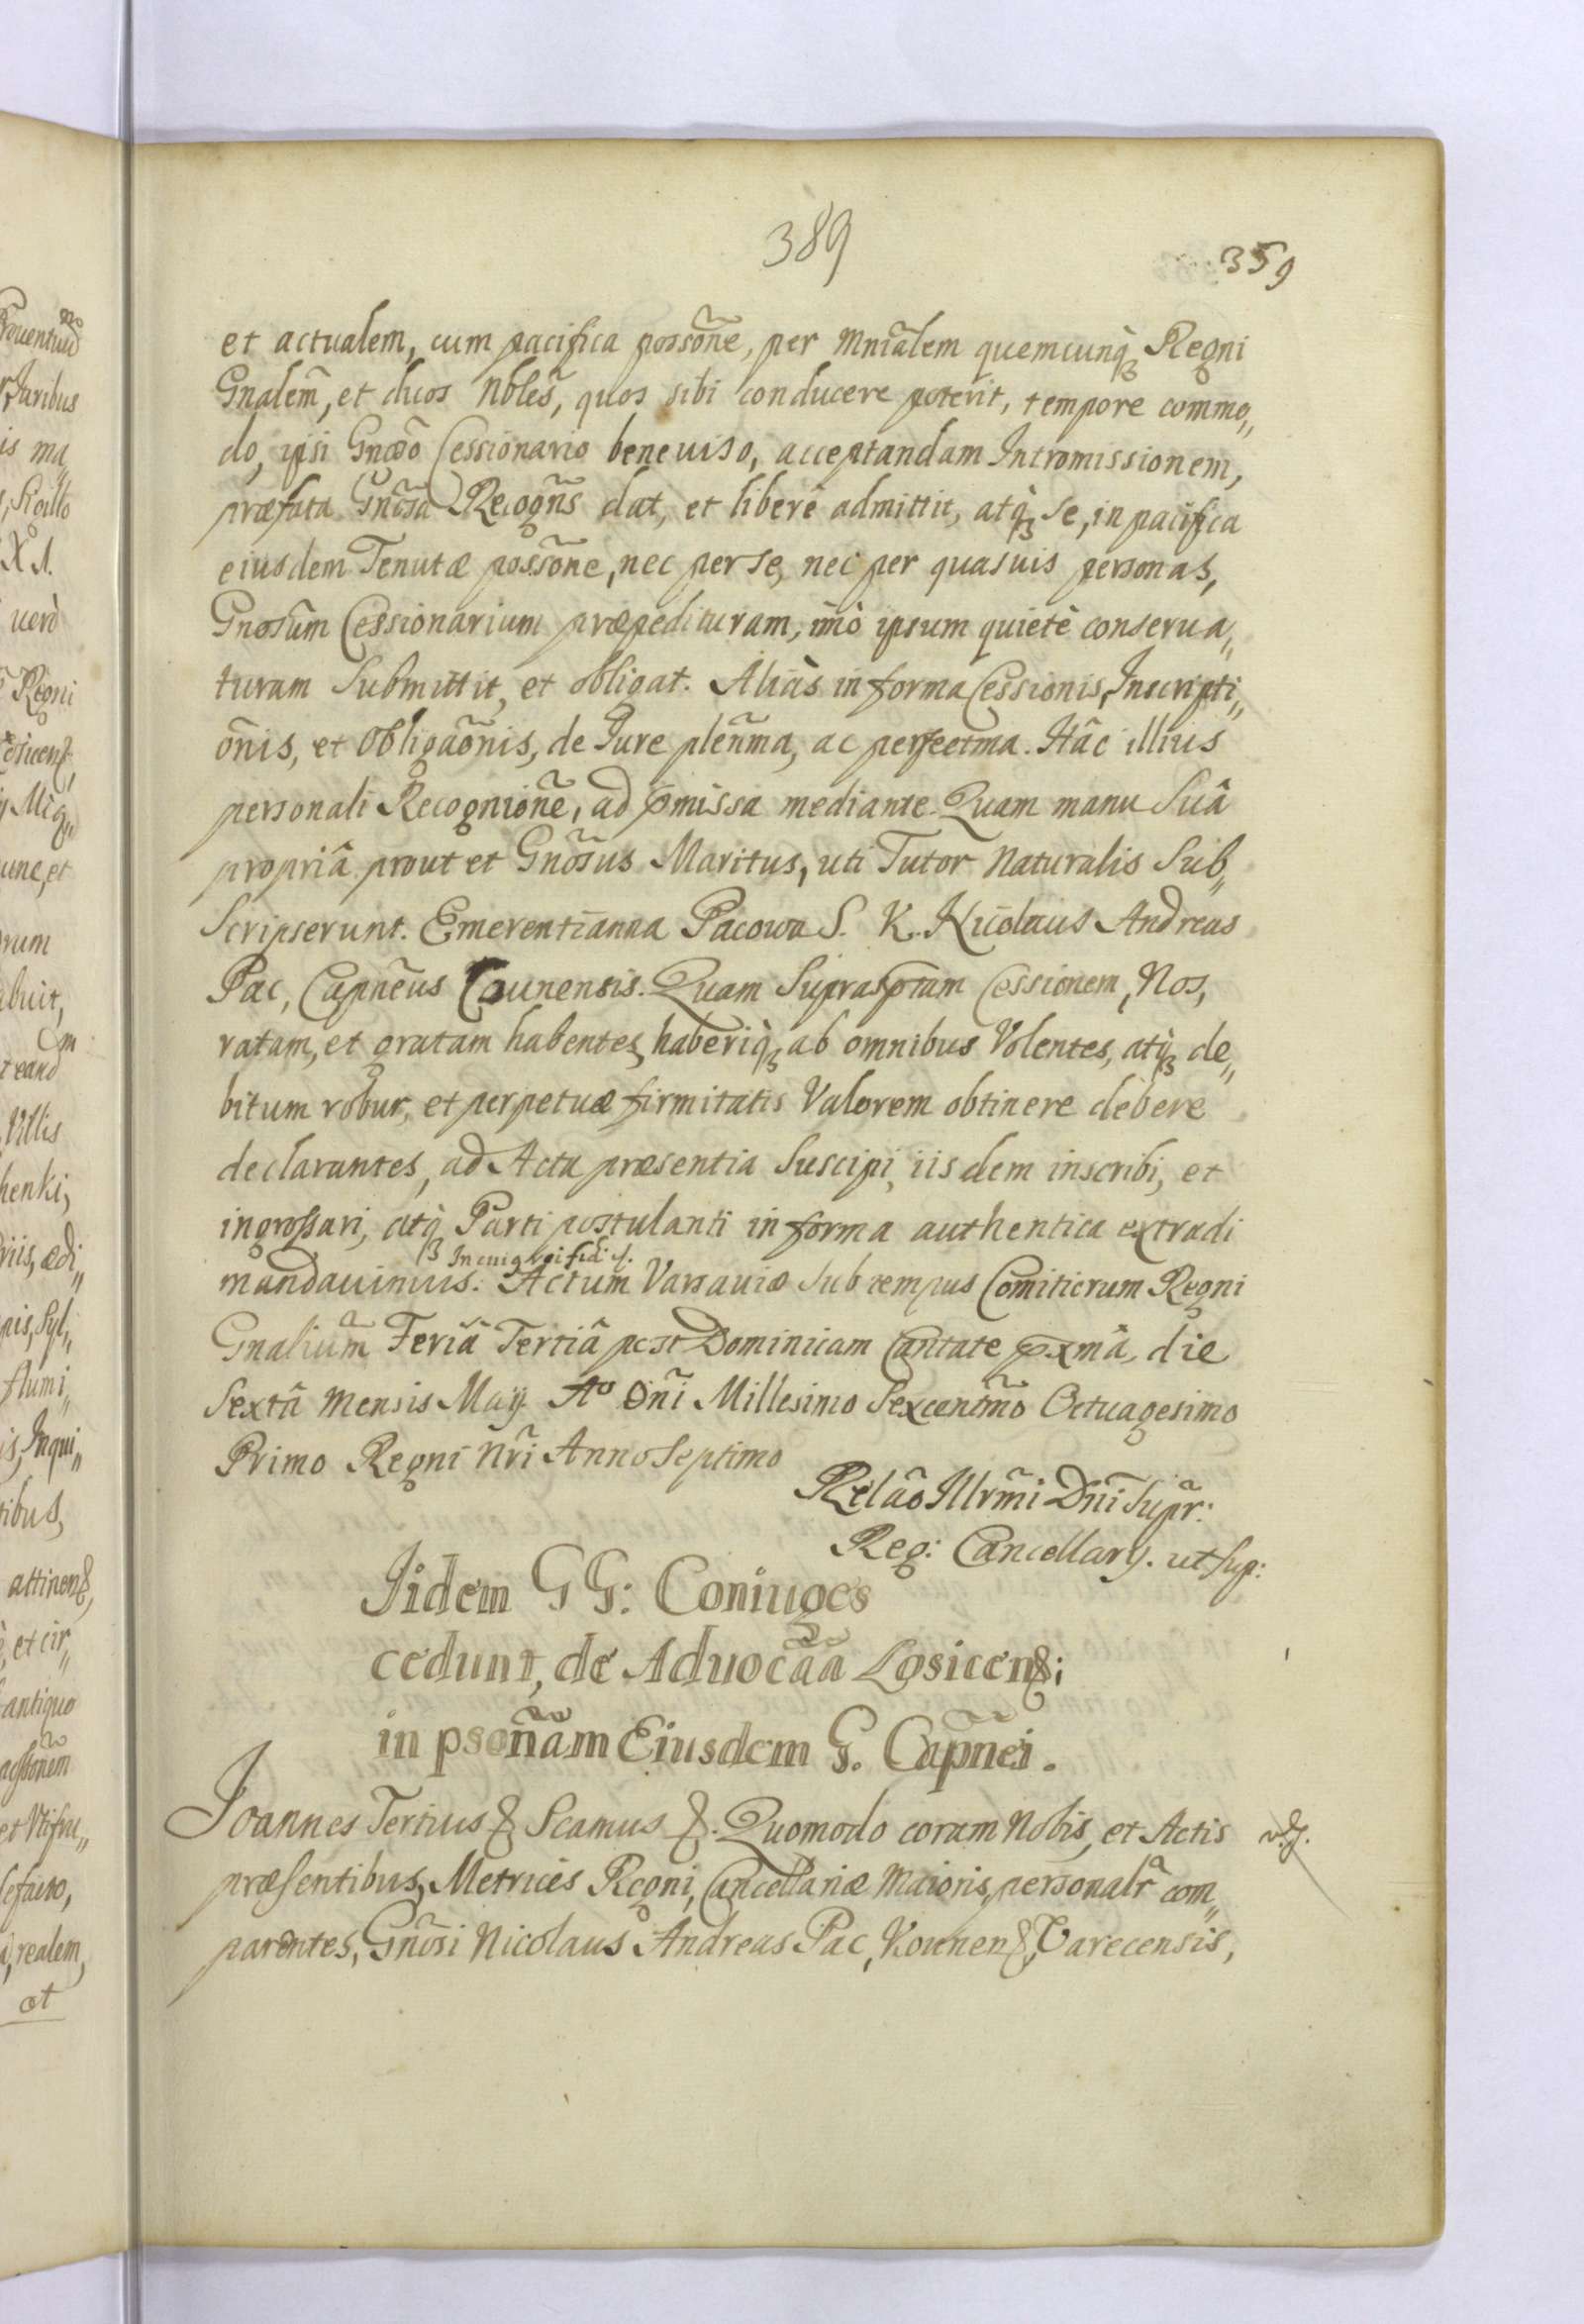 389
359
et actualem, cum pacifica possõne, per Mniãlem quemcunq̀ Regni
Gnalem̃, et duos Nbles̃, quos sibi conducere poterit, tempore commo„
do, ipsi Gnoso Cessionario beneuiso, acceptandam Intromissionem,
præfata Gnosã Recogñs dat, et liberè admittit, atq̀ se, in pacifica
eiusdem Tenutæ possõne, nec per se, nec per quasuis personas,
Gnosum̃ Cessionarium præpedituram, imò ipsum quietè conserua„
turam Submittit, et obligat. Aliàs in forma Cessionis, Inscripti„
õnis, et Obligaõnis, de Jure pleñma, ac perfectma. Hâc illius
personali Recognionẽ, ad p̃missa mediante. Quam manu Suâ
propriâ prout et Gnõsus Maritus, uti Tutor Naturalis Sub„
Scripserunt. Emerentianna Pacowa S. K. Nicolaus Andreas
Pac, Capnẽus Caunensis. Quam Suprasptam Cessionem, Nos,
ratam, et gratam habentes, haberiq̀ ab omnibus Volentes, atq̀ de„
bitum robur, et perpetuæ firmitatis Valorem obtinere debere
declarantes, ad Acta præsentia Suscipi, iisdem inscribi, et
ingrossari, atq̀ Parti postulanti in forma authentica extradi
In cuius rei fid:
mandauimus. Actum Varsauiæ Sub tempus Comitiorum Regni
Gnaliũm Feriâ Tertiâ post Dominicam Cantate pxmâ, die
Sextâ Mensis Maÿ Aº Dñi Millesimo Sexcentm̃o Octuagesimo
Primo Regni Nr̃i Anno Septimo
Relão Illrm̃i Dñi Supr̃:
Reg: Cancellarÿ. ut Sup:
Iidem GG: Coniuges
cedunt, de Aduocãa Losicens:
in psonãm Eiusdem G. Capñei.
Joannes Tertius & Scamus &. Quomodo coram Nobis, et Actis
præsentibus, Metrices Regni, Cancellariæ Maioris, personalr̃ com„
parentes, Gnõsi Nicolaus Andreas Pac, Kounens, Varecensis,